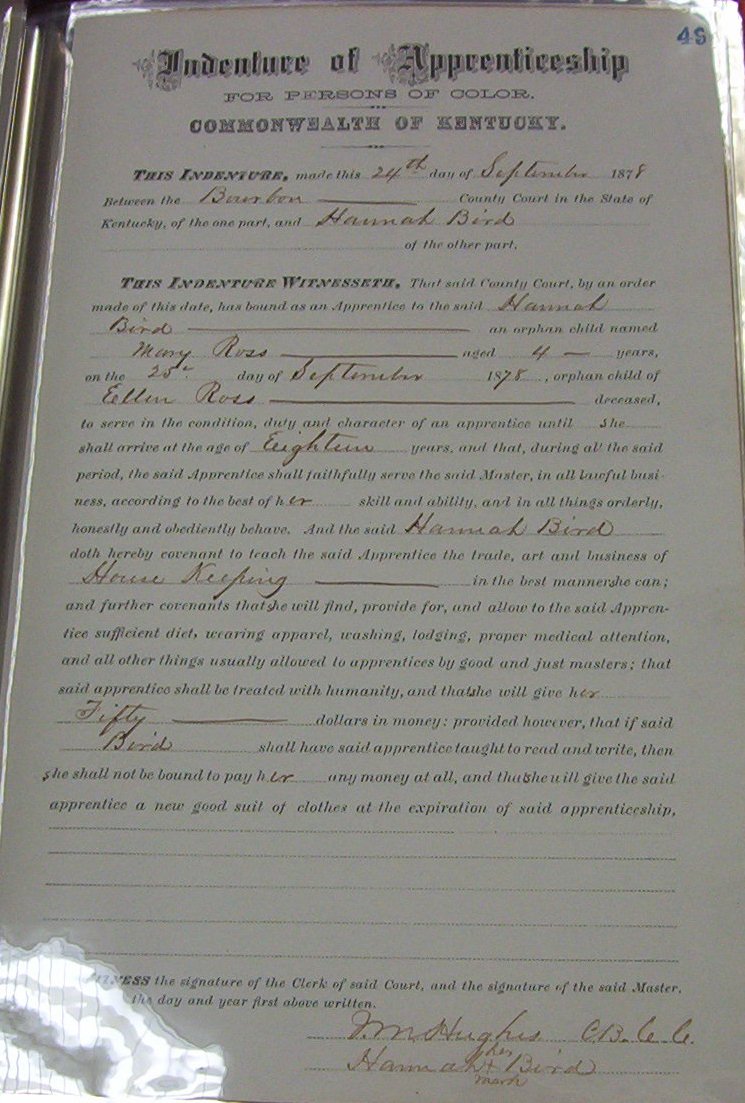 46
Indenture of Apprenticeship
FOR PERSONS OF COLOR.
COMMONWEALTH OF KENTUCKY.
THIS INDENTURE, made this 24th day of September 1878
Between the Bourbon County Court in the State of
Kentucky, of the one part, and Hannah Bird
of the other part.
THIS INDENTURE WITNESSETH, That said County Court, by an order
made of this date, has bound as an Apprentice to the said Hannah
Bird an orphan child named
Mary Ross aged 4 years,
on the 25" day of September 1878, orphan child of
Ellen Ross deceased,
to serve in the condition, duty and character of an apprentice until she
shall arrive at the age of Eeighteen years, and that, during all the said
period, the said Apprentice shall faithfully serve the said Master, in all lawful busi-
ness, according to the best of her skill and ability, and in all things orderly,
honestly and obediently behave. And the said Hannah Bird
doth hereby covenant to teach the said Apprentice the trade, art and business of
House Keeping in the best manner she can;
and further covenants that she will find, provide for, and allow to the said Appren-
tice sufficient diet, wearing apparel, washing, lodging, proper medical attention,
and all other things usually allowed to apprentices by good and just masters; that
said apprentice shall be treated with humanity, and that she will give her
Fifty dollars in money: provided however, that if said
Bird shall have said apprentice taught to read and write, then
she shall not be bound to pay her any money at all, and that she will give the said
apprentice a new good suit of clothes at the expiration of said apprenticeship,
WITNESS the signature of the Clerk of said Court, and the signature of the said Master,
the day and year first above written.
J.M. Hughes C.B.C.C.
her
Hannah + Bird
mark